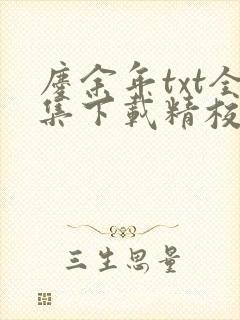 廑余年txt全
集下载精校
三生思量